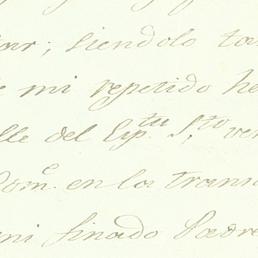 tar; siendolo tam
e mi repetido he
lle del Esp.tu S.to, ver
Dom.e en la trans
mi finado Padre